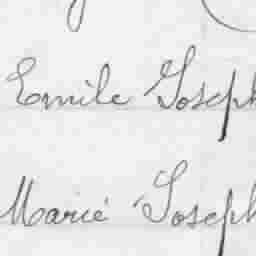 Emile Joseph
Marie Joseph